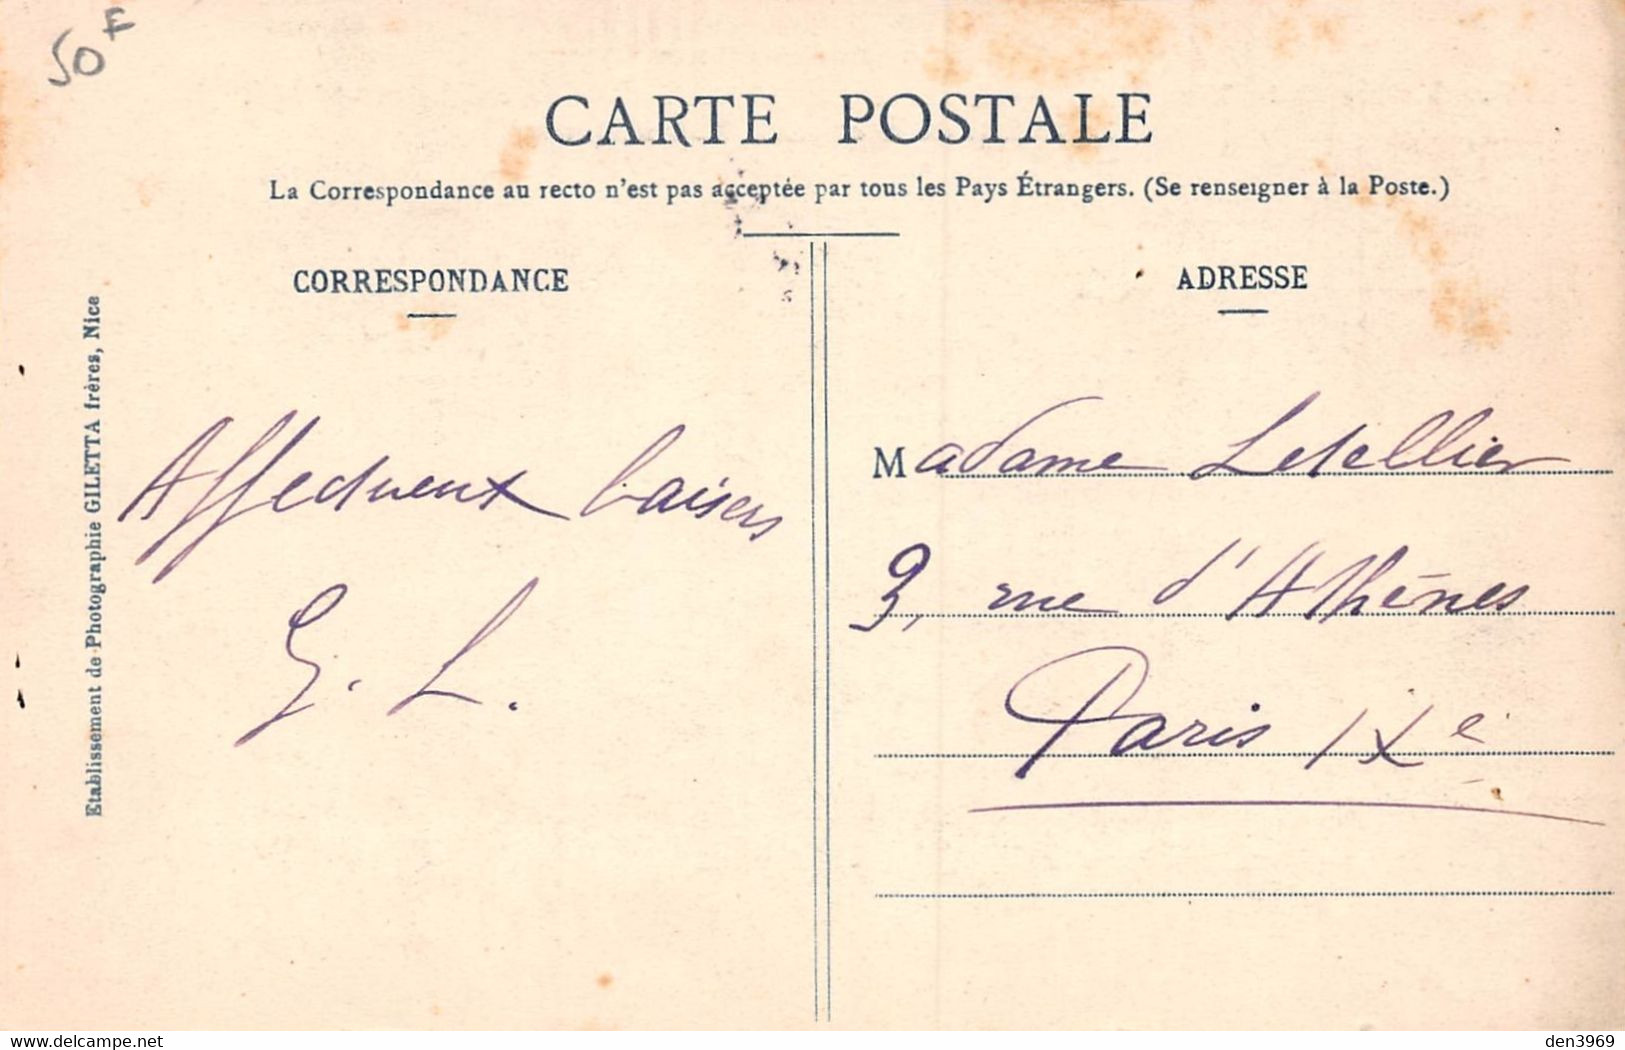 50F
CARTE POSTALE
La Correspondance au recto n'est pas acceptée par tous les Pays Étrangers. (Se renseigner à la Poste.)
CORRESPONDANCE
ADRESSE
Etablissement de Photographie GILETTA frères, Nice
Affectueux baisers
G. L.
Madame Letellier
9, rue d'Athènes
Paris IXe
delcampe.net
den3969